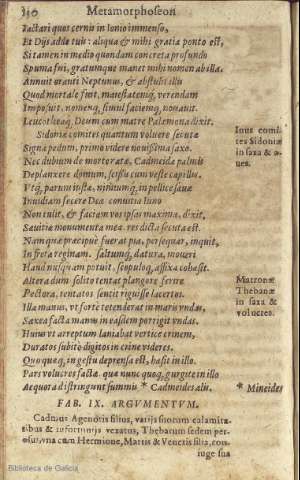 310 Metamorphoseon
Iactari quos cernis in Ionio immenso,
Et Dijs adde tuis: aliqua & mihi gratia ponto est,
Si tamen in medio quondam concreta profundo
Spuma fui, gratumque manet mihi nomen ab illa.
Annuit oranti Neptunus, & abstulit illis
Quod mortale fuit, maiestatemq́; verendam
Imposuit, nomenq́; simul faciemq́; nouauit.
Leucotheaq́; Deum cum matre Palemona dixit.
Sidoniæ comites quantum valuere secutæ
Signa pedum, primo videre nouissima saxo.
Nec dubium de morte ratæ, Cadmeida palmis
Deplanxere domum, scissæ cum veste capillos.
Vtq́; parum iustæ, nimiumq́; in pellice sæuæ
Inuidiam fecere Deæ conuitia Iuno
Non tulit, & faciam vos ipsas maxima, dixit,
Sæuitiæ monumenta meæ. res dicta secuta est.
Nam quæ præcipuè fuerat pia, persequar, inquit,
In freta reginam. saltumq́; datura, moueri
Haud usquam potuit, scopuloq́; affixa cohæsit.
Altera dum solito tentat plangore ferire
Pectora, tentatos sentit riguisse lacertos.
Illa manus, vt fortè tetenderat in maris vndas,
Saxea facta manus in easdem porrigit vndas.
Huius vt arreptum laniabat vertice crinem,
Duratos subitò digitos in crine videres.
Quo quæq́; in gestu deprensa est, hæsit in illo.
Pars volucres factæ. quæ nunc quoq́; gurgite in illo
Aequora distringunt summis * Cadmeides alis.
Inus comi-
tes Sidoniæ
in saxa & a-
ues.
Matronæ
Thebanæ
in saxa &
volucres.
* Mineides
FAB. IX. ARGVMENTVM.
Cadmus Agenoris filius, varijs suorum calamita-
tibus & infortunijs vexatus, Thebarum sedem per-
osus, vna cum Hermione, Martis & Veneris filia, con-
iuge sua
Biblioteca de Galicia